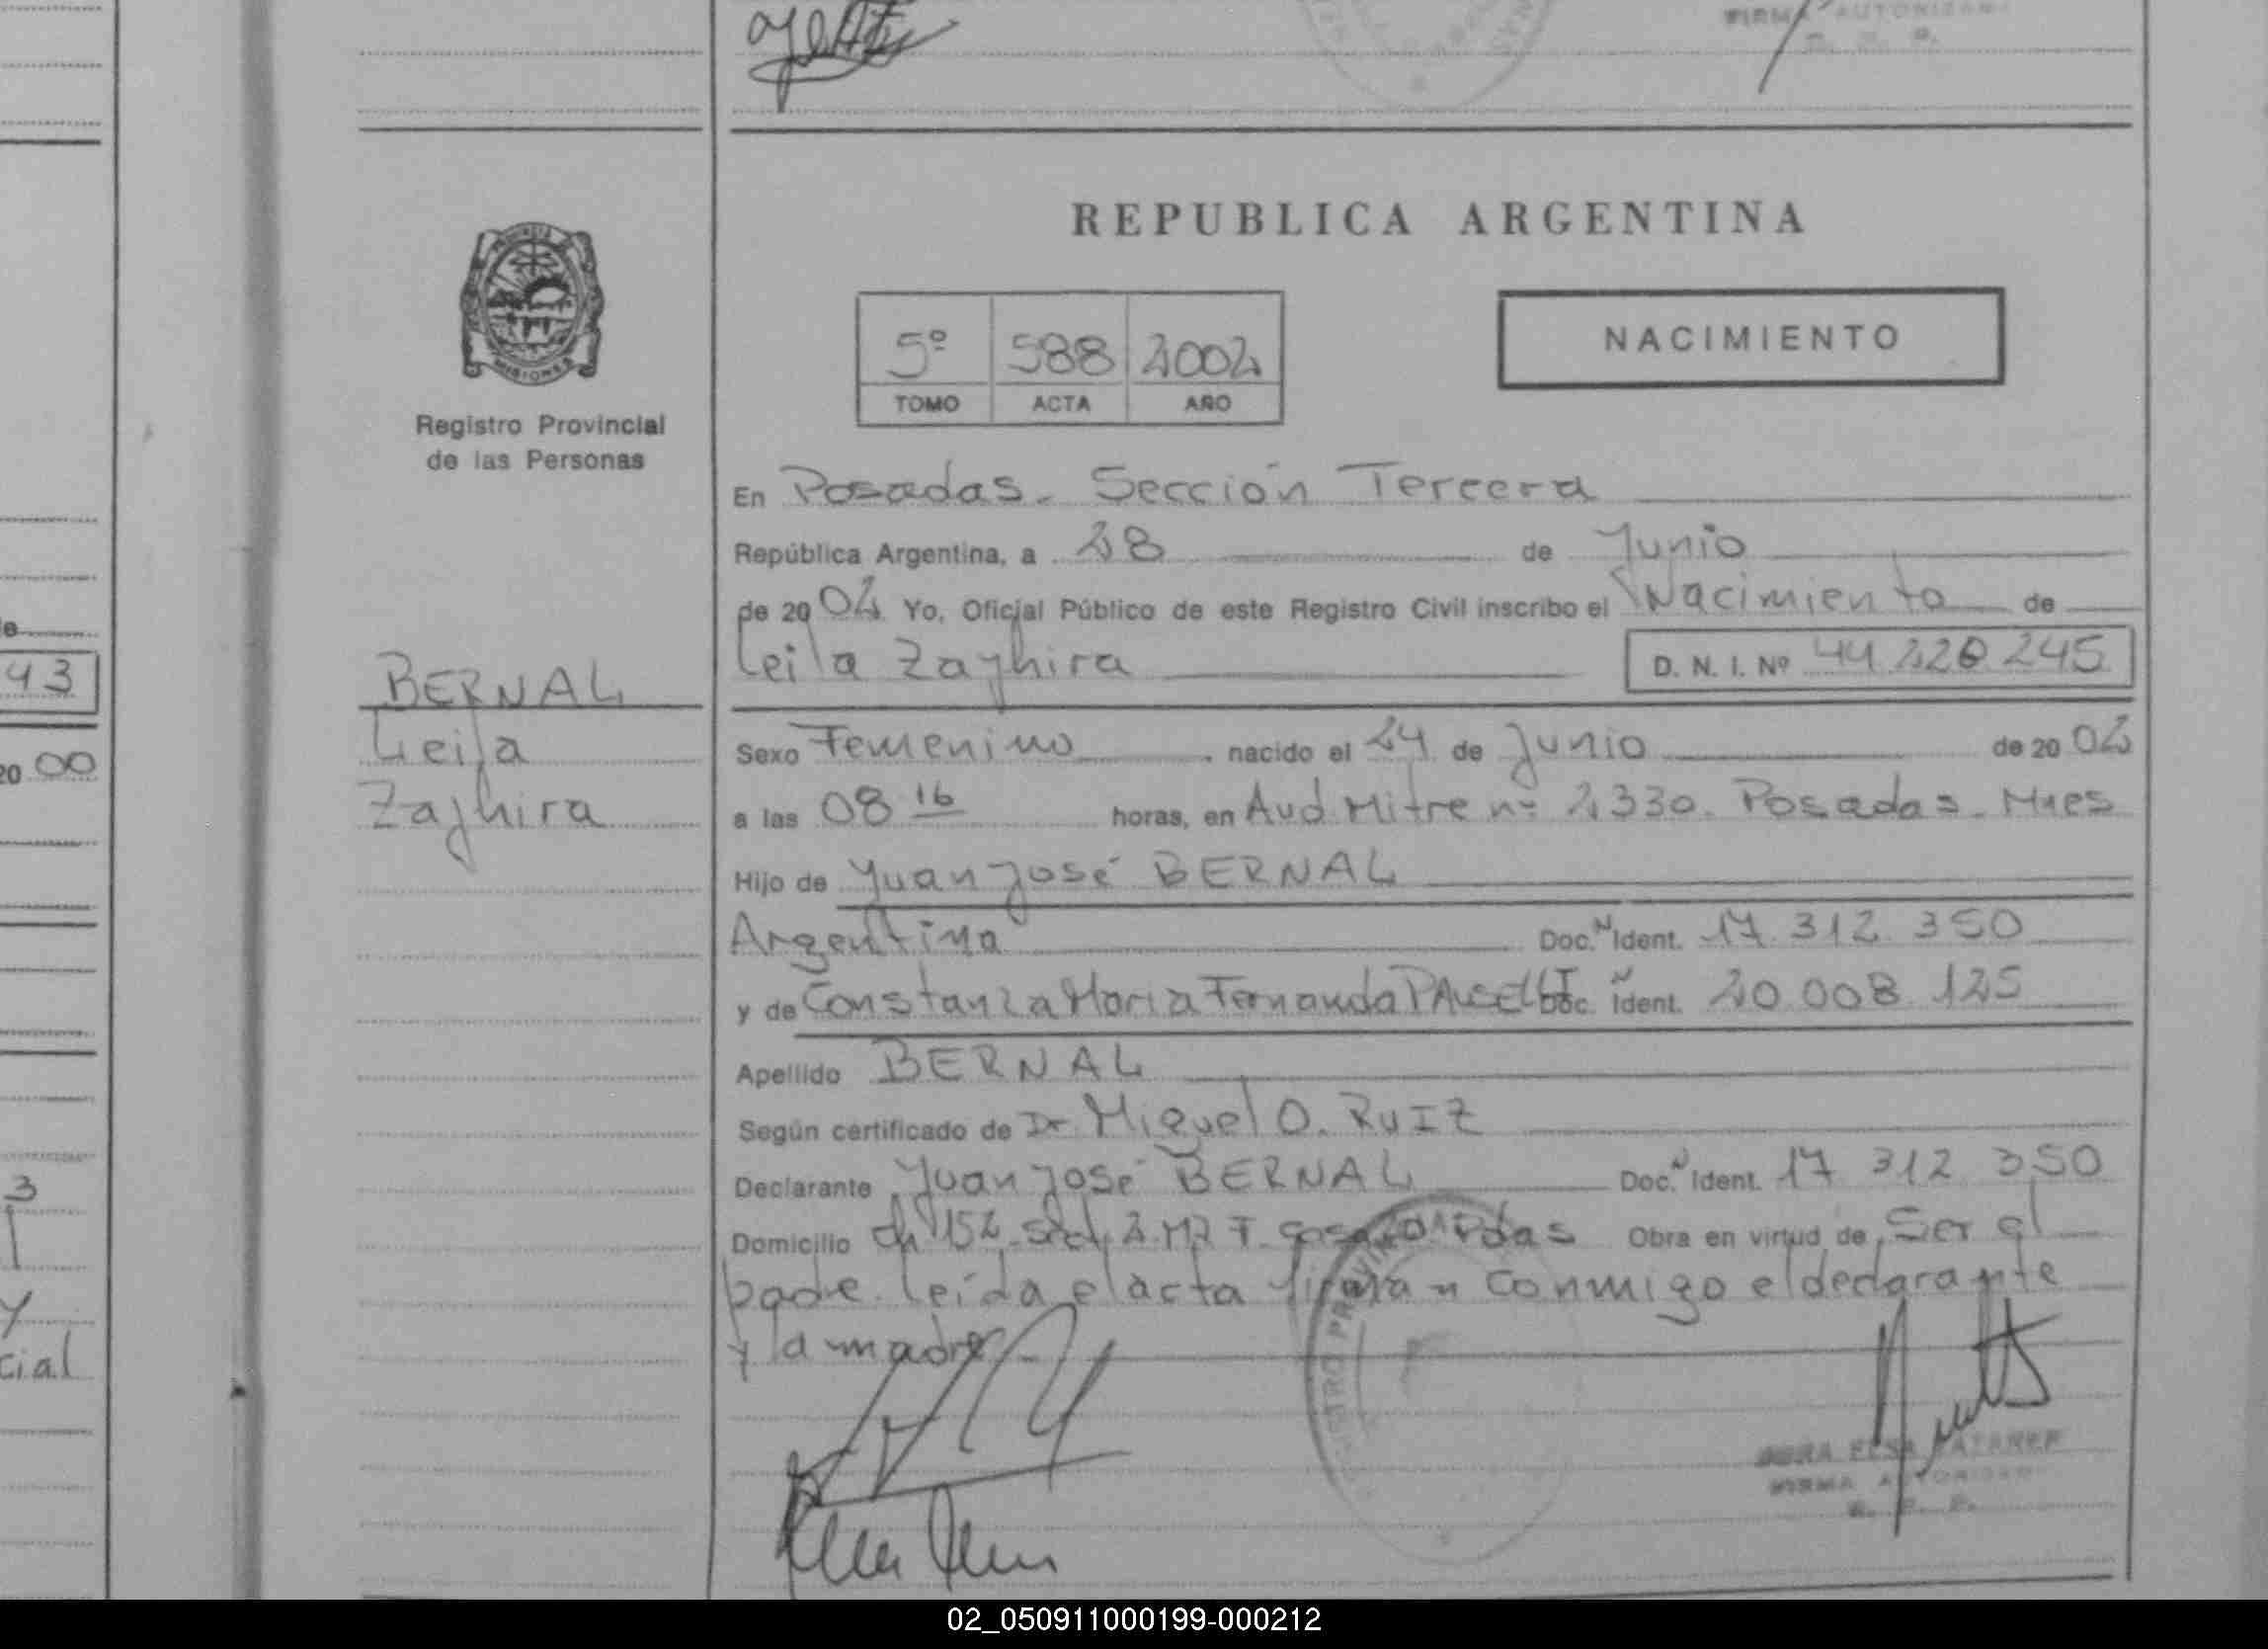 FIRMA AUTORIZADA
REPUBLICA ARGENTINA
MISIONES
5º 588 2002
TOMO ACTA AÑO
NACIMIENTO
Registro Provincial
de las Personas
En Posadas. Sección Tercera
República Argentina, a 28 de Junio
de 2002 Yo, Oficial Público de este Registro Civil inscribo el Nacimiento de
Leila Zaghira D. N. I. Nº 44 220 245
BERNAL
Leila
Zaghira
Sexo Femenino nacido el 24 de Junio de 2002
a las 08 16 horas, en Avd. Mitre nº 2330. Posadas. Mnes
Hijo de Juan José BERNAL
Argentina Doc. N Ident. 17 312 350
y de Constanza Maria Fernanda Doc. N Ident. 20 008 125
Apellido BERNAL
Según certificado de Dr Miguel O. RUIZ
Declarante Juan José BERNAL Doc. N Ident. 17 312 350
Domicilio ch 152 Pdas Obra en virtud de Ser el
padre. Leída el acta firman conmigo el declarante
y la madre
FIRMA AUTORIZADA
R. P. P.
43
20 00
3
y
cial
02_050911000199-000212